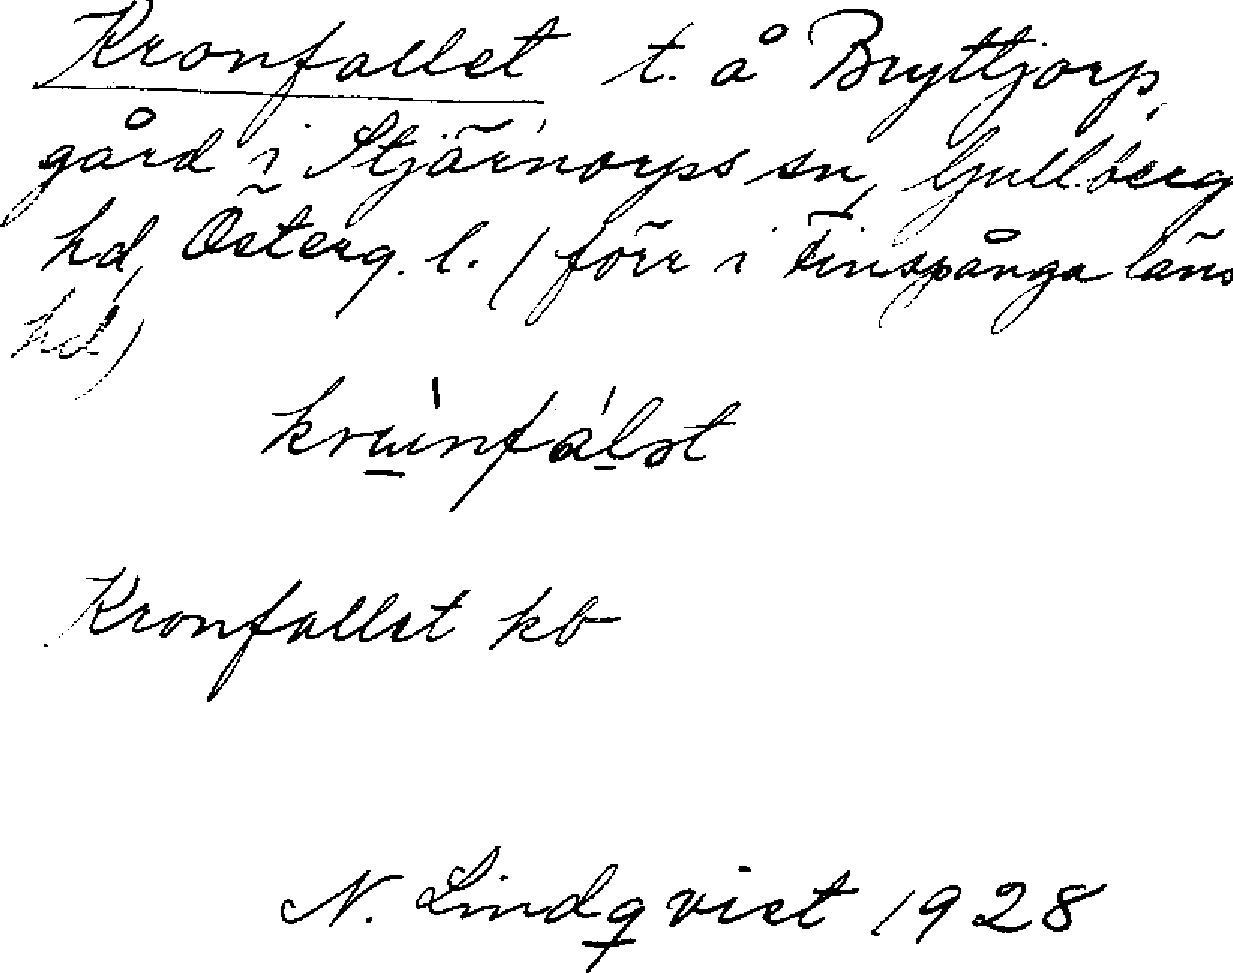 Kronfallet t. å Bryttjorp,
gård i Stjärnorps sn, Gullberg
hd, Österg. l. (förr i Finspånga läns
hd)
krɯ̀nfálət
Kronfallet kb
N. Lindqvist 1928